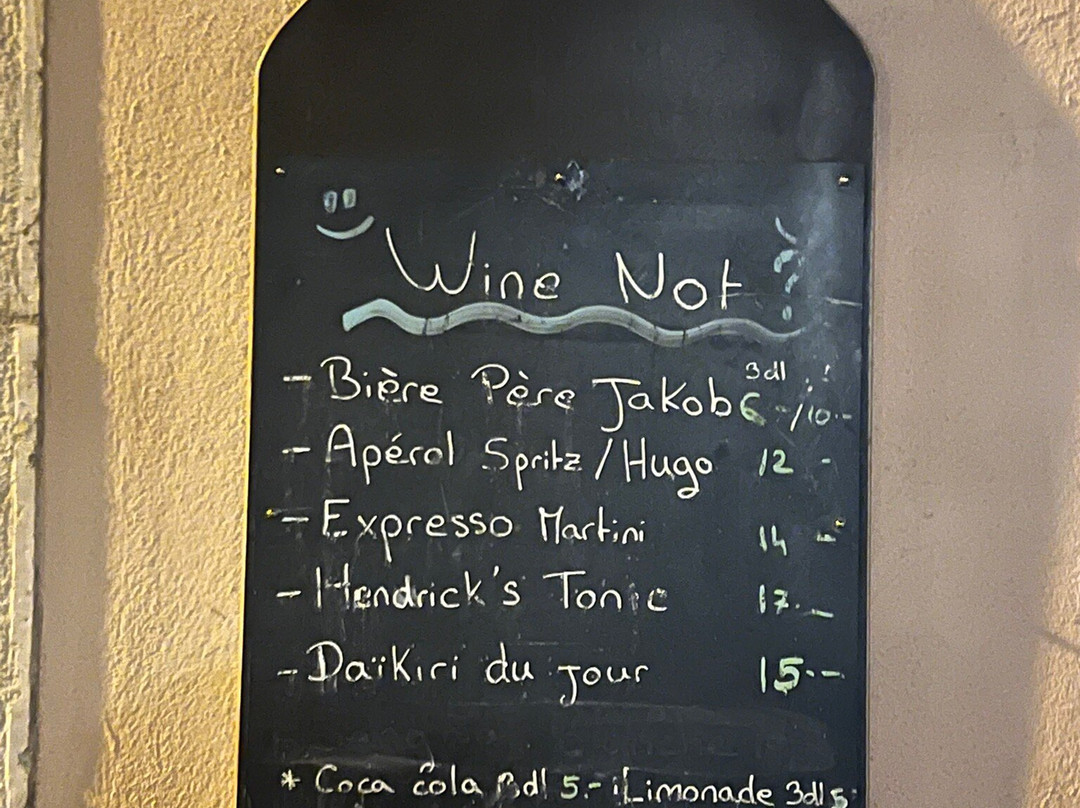 Wine Not ?
3dl
- Bière Père Jakob 6.-/10.-
- Apérol Spritz / Hugo 12 -
- Expresso Martini 14 -
- Hendrick's Tonic 17.-
- Daïkiri du jour 15.-
* Coca cola 3dl 5.- Limonade 3dl 5